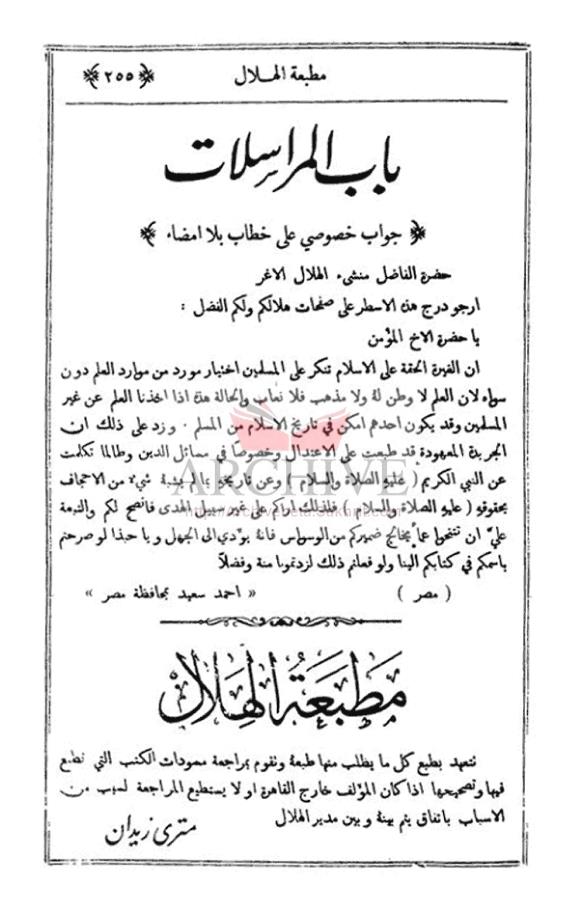 مطبعة الهلال ﴿ ٢٥٥ ﴾
باب المراسلات
﴿ جواب خصوصي على خطاب بلا امضاء ﴾
حضرة الفاضل منشىء الهلال الاغر
ارجو درج هذه الاسطر على صفحات هلالكم ولكم الفضل :
يا حضرة الاخ المؤمن
ان الغيرة الحقة على الاسلام تنكر على المسلمين اختيار مورد من موارد العلم دون
سواه لان العلم لا وطن لهُ ولا مذهب فلا نعاب والحالة هذه اذا اخذنا العلم عن غير
المسلمين وقد يكون احدهم امكن في تاريخ الاسلام من المسلم . وزد على ذلك ان
الجريدة المعهودة قد طبعت على الاعتدال وخصوصًا في مسائل الدين وطالما تكلمت
عن النبي الكريم ( عليه الصلاة والسلام ) وعن تاريخهِ بما لم يشبهُ شيء من الاجحاف
بحقوقهِ ( عليه الصلاة والسلام ) فلذلك اراكم على غير سبيل الهدى فانصح لكم والتبعة
عليَّ ان تتنحوا عما يخالج ضميركم من الوسواس فانهُ يؤدي الى الجهل ويا حبذا لو صرحتم
باسمكم في كتابكم الينا ولو فعلتم ذلك لزدتمونا منة وفضلاً
( مصر ) « احمد سعيد بمحافظة مصر »
مطبعة الهلال
نتعهد بطبع كل ما يطلب منها طبعهُ ونقوم بمراجعة مسودات الكتب التي تطبع
فيها وتصحيحها اذا كان المؤلف خارج القاهرة او لا يستطيع المراجعة لسبب من
الاسباب باتفاق يتم بينهُ وبين مدير الهلال
متري زيدان
ARCHIVE